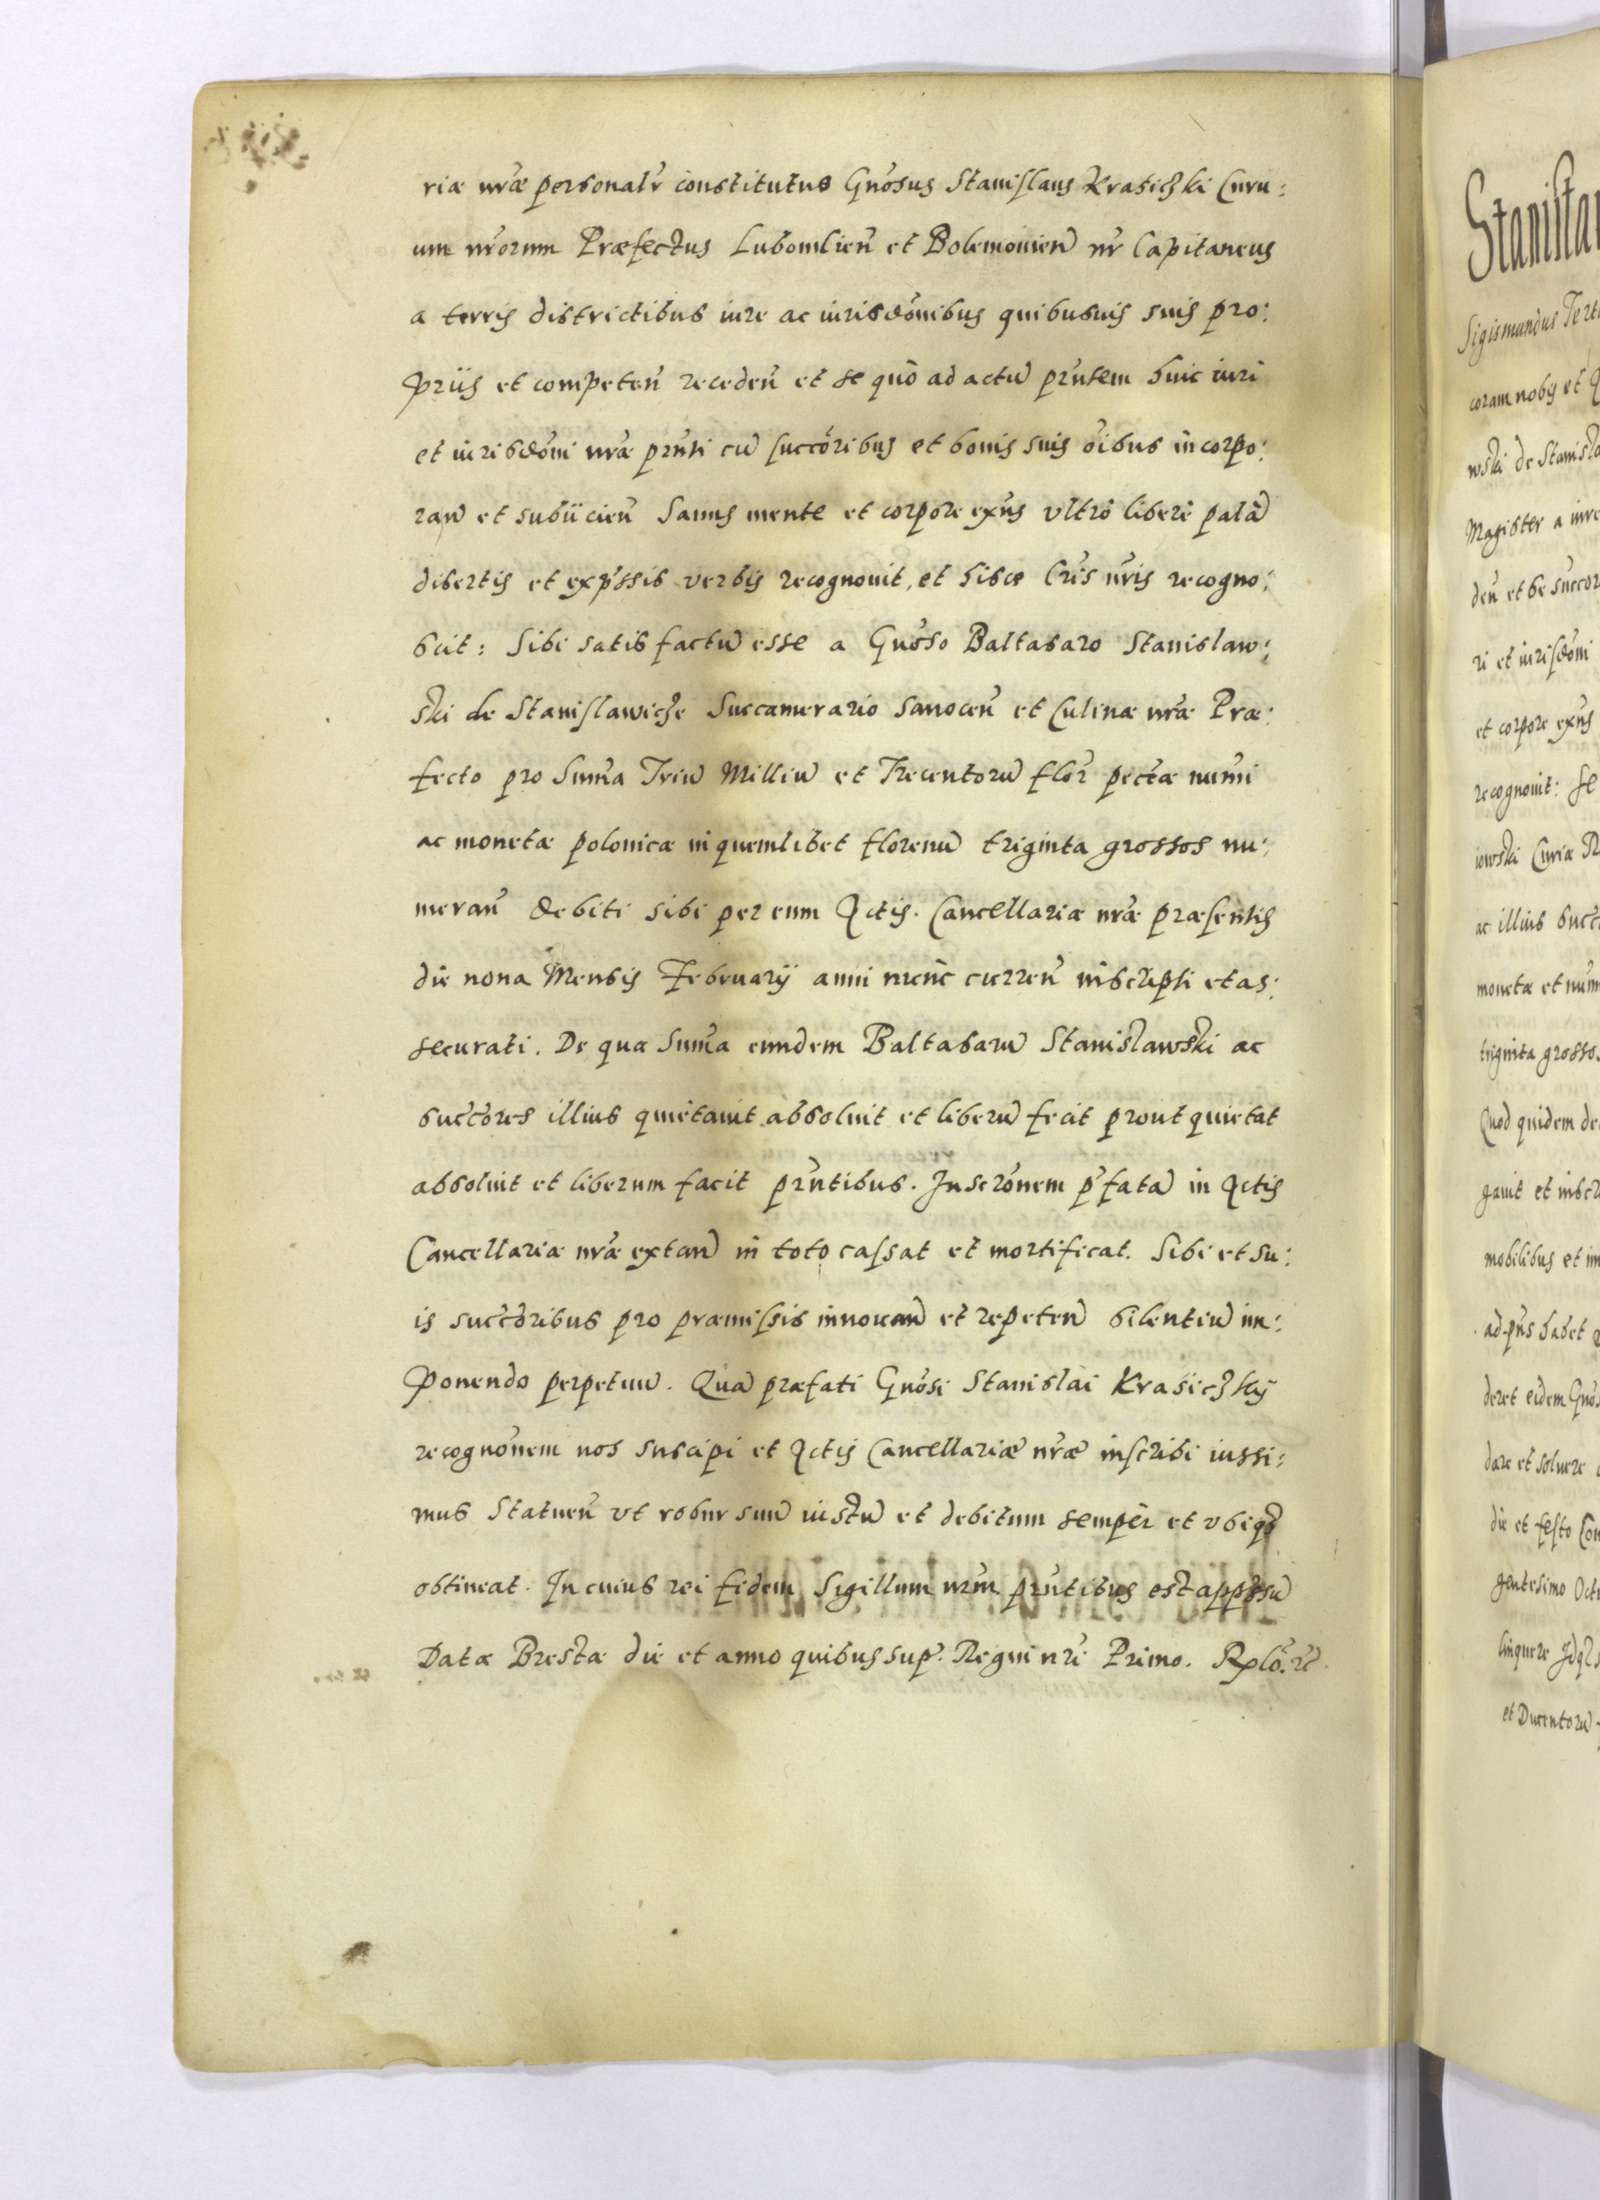 riæ nr̃æ personalr̃ constitutus Gnõsus Stanislaus Krasiczki Curu:
um nr̃orum Præfectus Lubomlien̄ et Bolemouien̄ nr̃ Capitaneus
a terris districtibus iure ac iurisdõnibus quibusuis suis pro:
priis et competen̄ receden̄ et se quò ad actū prn̄tem huic iuri
et iurisdõni nr̃æ prn̄ti cū succõribus et bonis suis oĩbus incorpo:
ran̄ et subiicien̄ Sanus mente et corpore exn̄s vltrò liberè palā
disertis et exp̃ssis verbis recognouit, et hisce l̃ris nr̃is recogno:
scit: Sibi satis factū esse a Gnõso Baltasaro Stanislaw:
ski de Stanislawicze Succamerario Sanocen̄ et Culinæ nr̃æ Præ:
fecto pro Sum̃a Triū Milliū et Trecentorū flor̃ pectæ num̃i
ac monetæ polonicæ in quemlibet florenū triginta grossos nu:
meran̄ debiti sibi per eum Actis Cancellariæ nr̃æ præsentis
die nona Mensis Februarij anni nunc curren̄ inscripti et as:
securati. De qua Sum̃a eundem Baltasarū Stanislawski ac
succõres illius quietauit absoluit et liberū fecit prout quietat
absoluit et liberum facit prn̄tibus. Inscrõnem p̃fatā in Actis
Cancellariæ nr̃æ extan̄ in toto cassat et mortificat. Sibi et su:
is succõribus pro præmissis innouan̄ et repeten̄ silentiū im:
ponendo perpetuū. Quā præfati Gnõsi Stanislai Krasiczkij
recognõnem nos suscipi et Actis Cancellariæ nr̃æ inscribi iussi:
mus Statuen̄ vt robur suū iustū et debitum semper et vbiqꝫ
obtineat. In cuius rei fidem Sigillum nr̃m prn̄tibus est app̃ssū
Datæ Brestæ die et anno quibus sup̃. Regni nr̃i Primo. Rẽlõ. r̃e
Stanislau
Sigismundus Terti
coram nobis et
wski de Stanisla
Magister a iure
den̄ et se succor
ri et iurisdõni
et corpore exn̄s
recognouit: se
iowski Curiæ R
ac illius succ
monetæ et num
triginta grossos
Quod quidem de
gauit et inscr
mobilibus et im
ad pn̄s habet
deret eidem Gnõs
dare et soluere
die et festo Con
gentesimo Octu
linquere Idqꝫ s
et Ducentorū